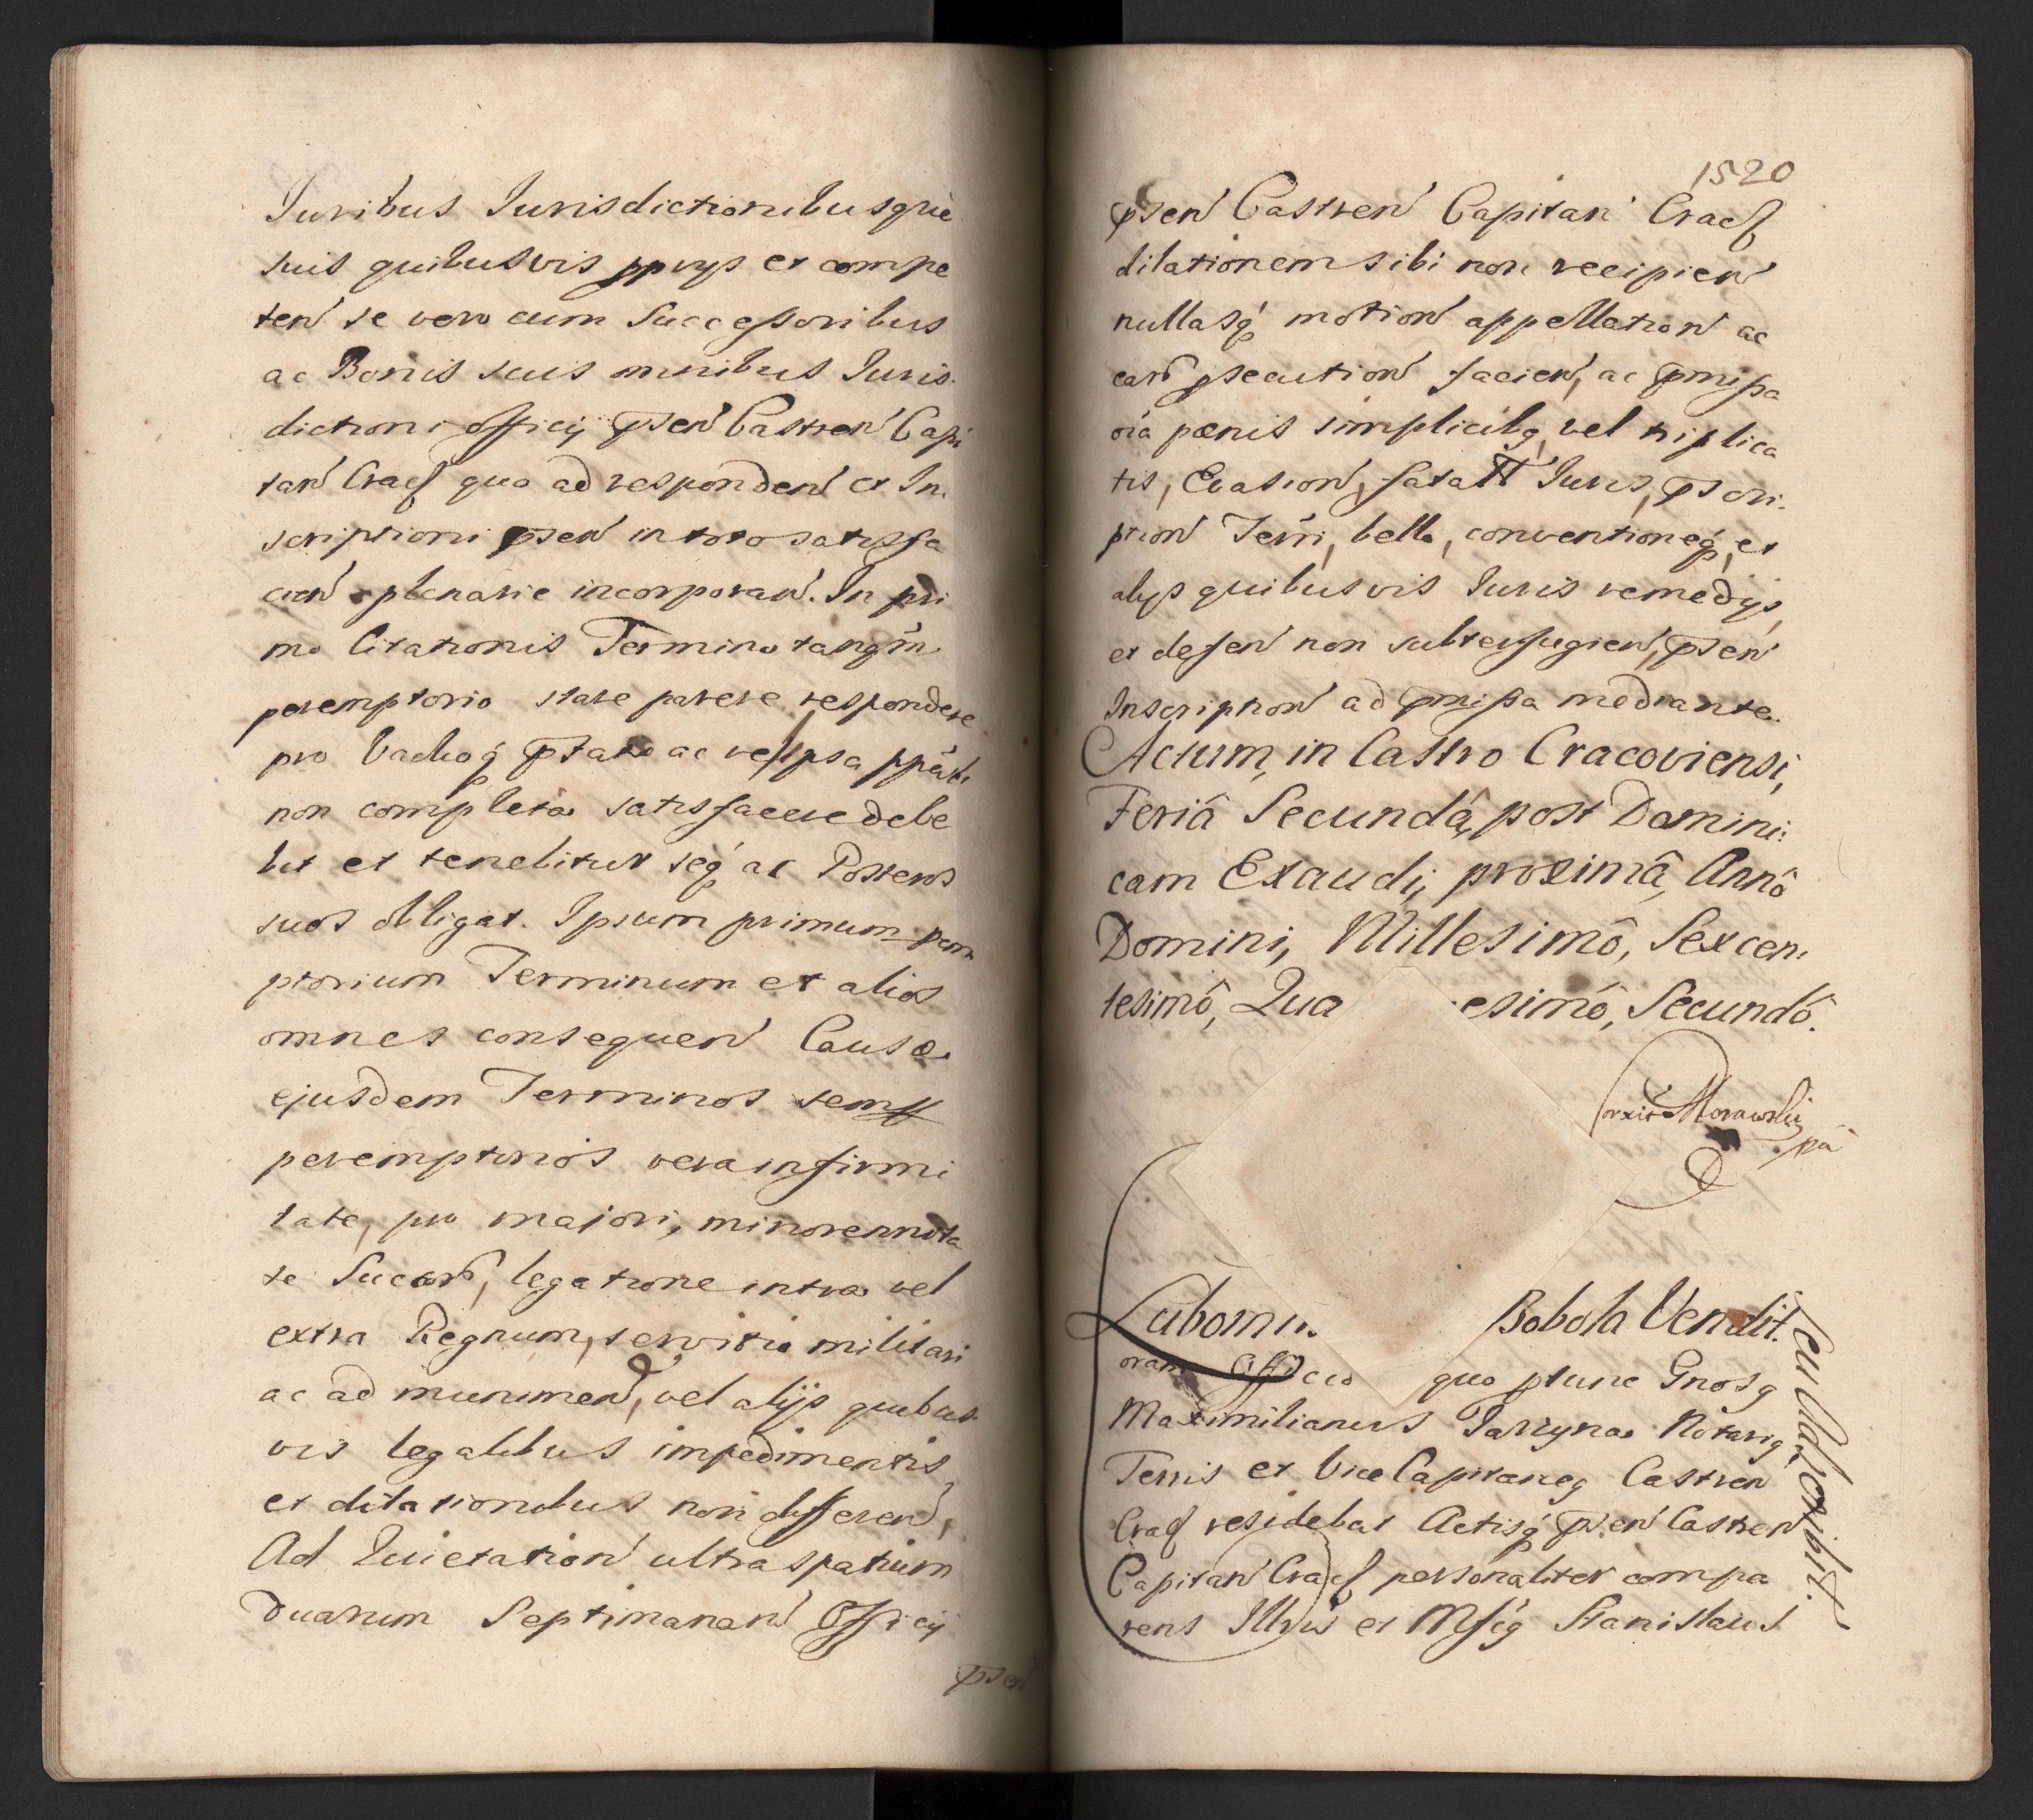 Iuribus Iurisdictionibusque
suis quibusvis ppys et compe
ten se vero cum Successoribus
ac Bonis suis omnibus Iuris
dictioni officij psen Castren Capi
tan Crac quo ad responden et In
scriptioni psen in toto satisfa
cien plenarie incorporan. In pri
mo Citationis Termino tanqm
peremptorio stare parere respondere
pro Vadioq ptato ac re ipsa
non completa satisfacere debe
bit et tenebitur seq ac Posteros
suos obligat. Ipsum primum perem
ptorium Terminum et alios
omnes consequen Causæ
ejusdem Terminos
peremptorios vera infirmi
tate, pro majori, minorennita
te Sucor, legatione intra vel
extra Regnum, servitio militari
ac ad munimen, vel alijs quibus
vis legalibus impedimentis
et dilationibus non differen,
Ad Quietation ultra spatium
Duarum Septimanar Officij
psen
1520
psen Castren Capitan Crac
dilationem sibi non recipien
nullasq motion appellation ac
ear psecution facien, ac pmissa
oia pœnis simplicibq vel triplica
tis, Evasion, Iuris, pscri
ption Terri, bello, conventioneq, et
alys quibusvis Iuris remedijs
et defen non subterfugien, psen
Inscription ad pmissa mediante.
Actum, in Castro Cracoviensi,
Feriâ Secundâ, post Domini:
cam Exaudi, proximâ, Annô
Domini, Millesimô, Sexcen:
tesimô, Qua esimô, Secundô.
Morawski
Lubomi Bobola Vendit.
Coram Officio quo ptunc Gnosq
Maximilianus Jarzyna Notariq
Terris et Vice Capitaneq Castren
Crac residebat Actisq psen Castren
Capitan Crac personaliter compa
rens Illris et Mfcq Stanislaus
seu Adscribit